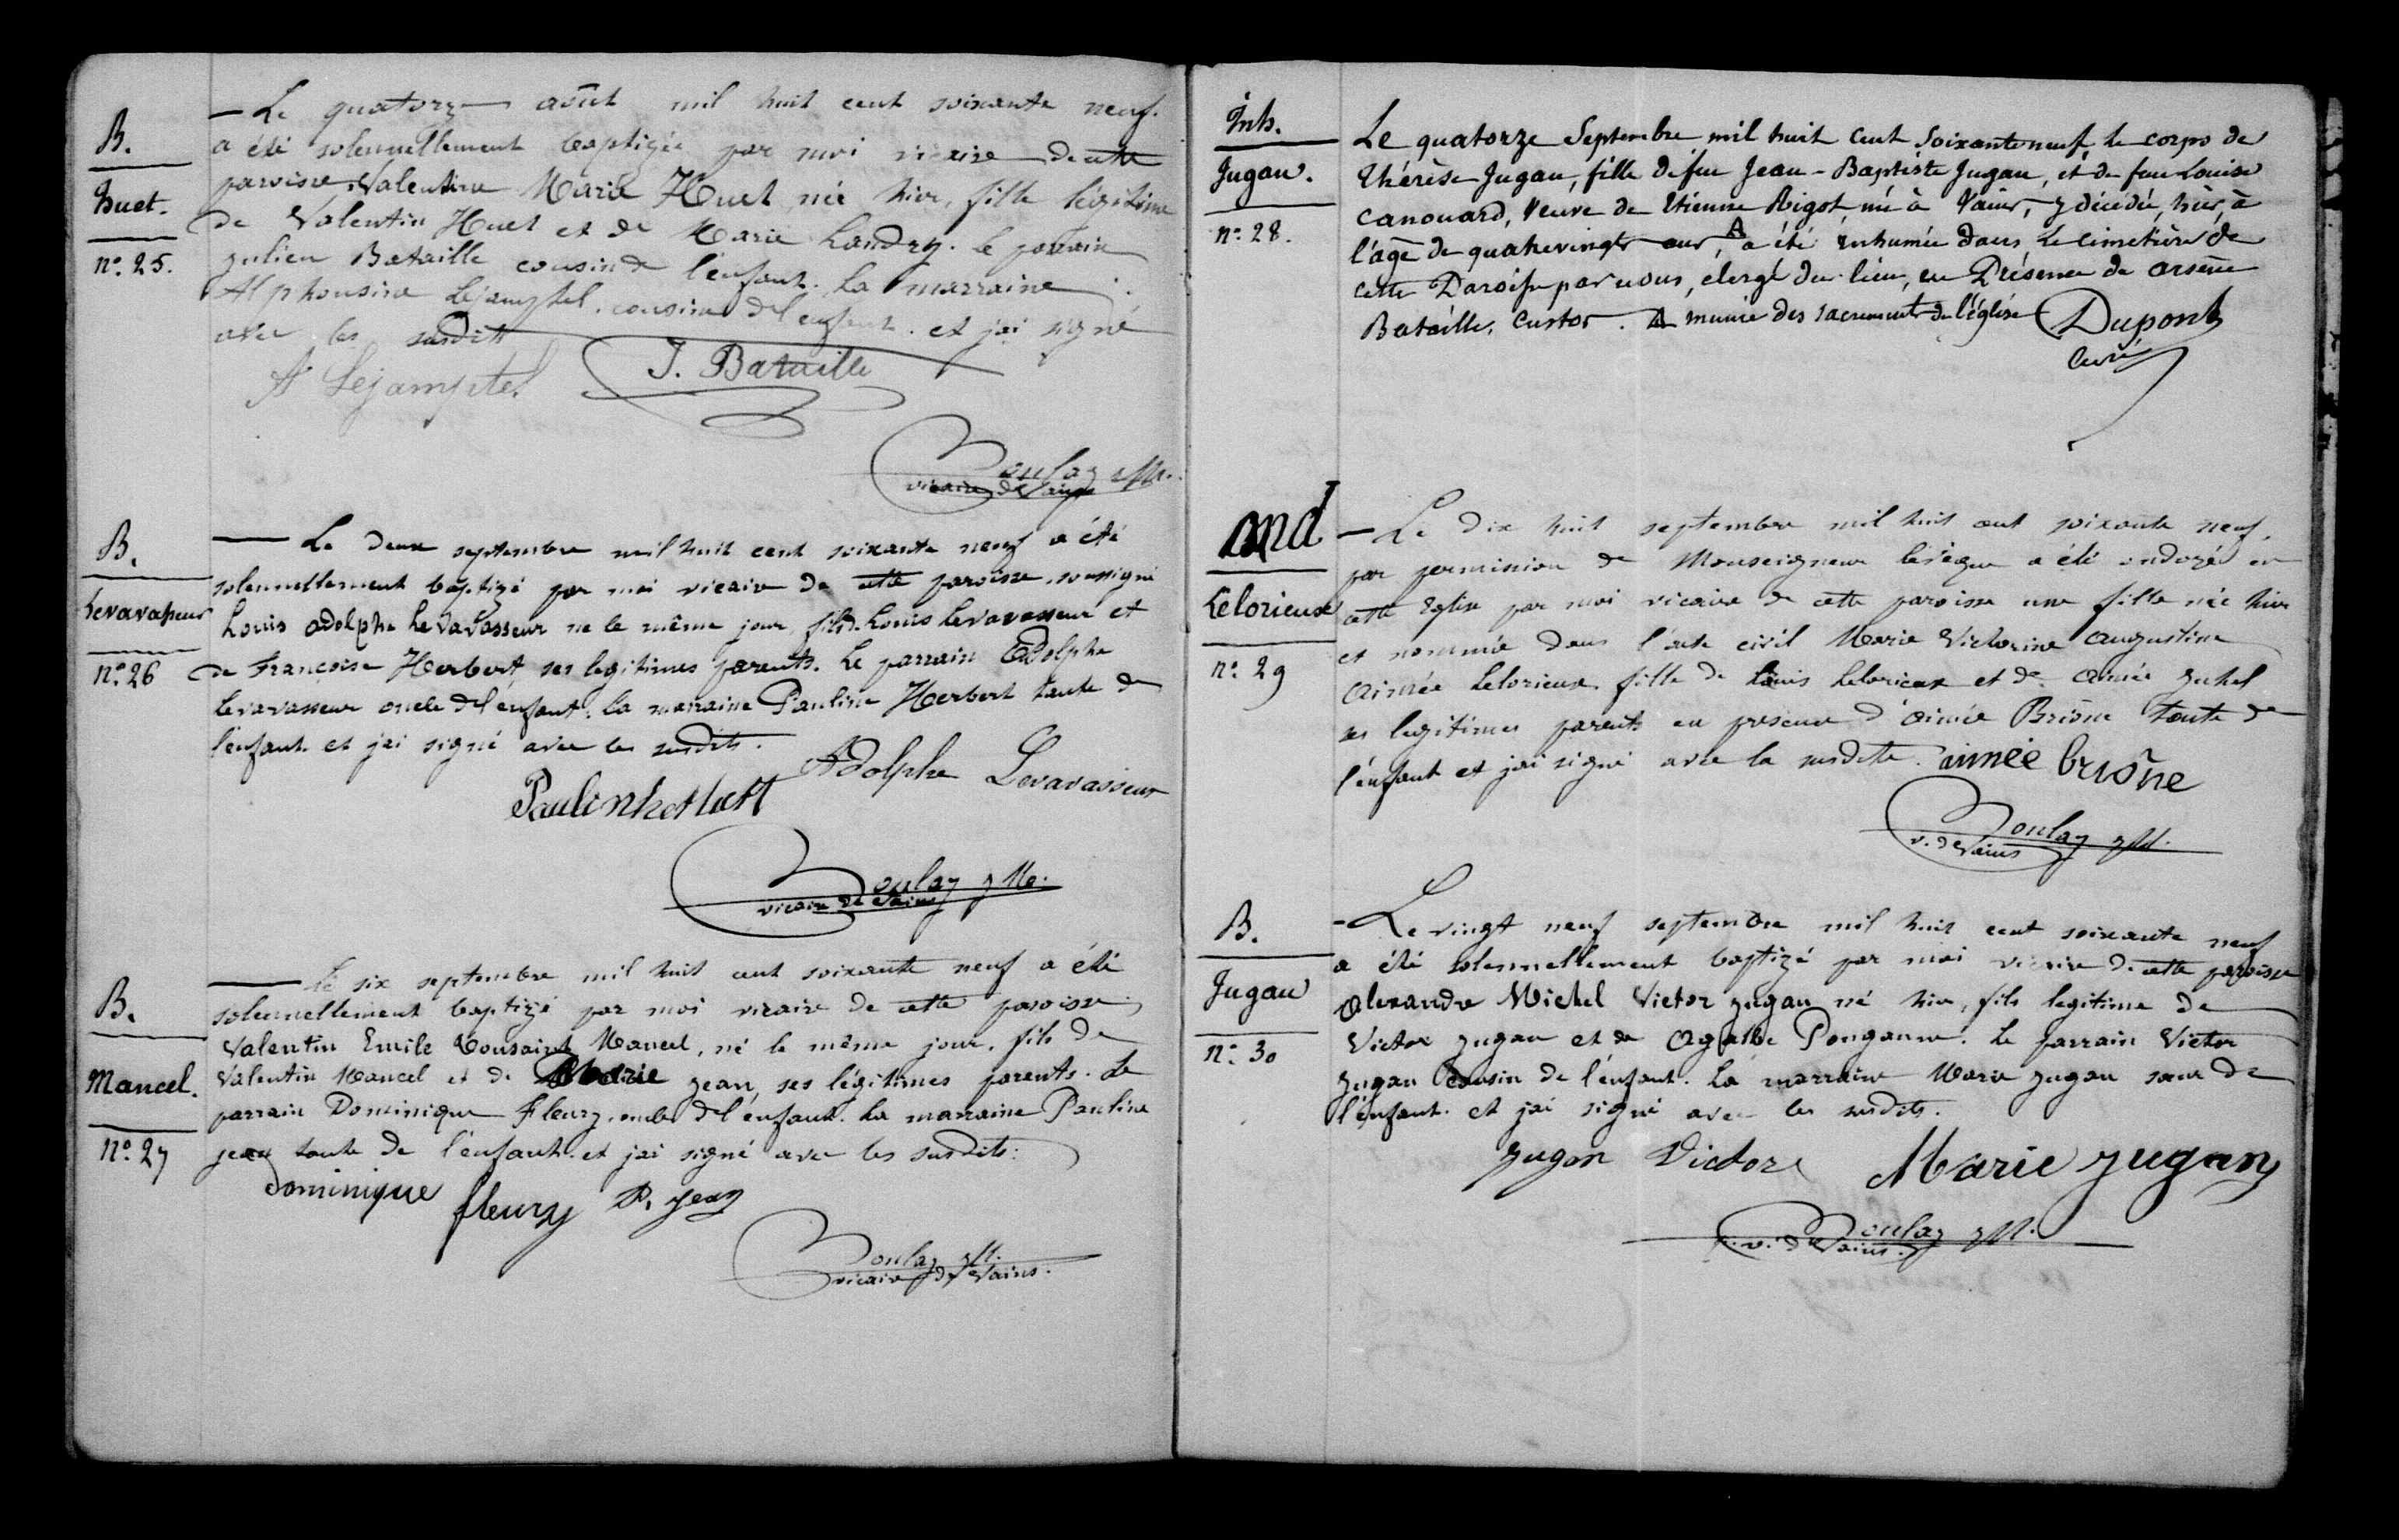 B.
Huet.
n.º 25.
— Le quatorze août mil huit cent soixante neuf.
a été solennellement baptizée par moi vicaire de cette
paroisse Valentine Marie Huet née hier, fille légitime
de Valentin Huet et de Marie Landry. le parrain
julien Bataille cousin de l'enfant. La marraine
Alphonsine Lejamptel, cousine de l'enfant. et j'ai signé
avec les susdits
A Lejamptel J. Bataille
Boulay
vicaire de Vains
B.
Levavasseur
n.º 26
— Le deux septembre mil huit cent soixante neuf a été
solennellement baptizé par moi vicaire de cette paroisse soussigné
Louis adolphe Levavasseur né le même jour, fils de Louis levavasseur et
de Françoise Herbert ses legitimes parents. Le parrain Adolphe
levavasseur oncle de l'enfant. la marraine Pauline Herbert tante de
l'enfant. et j'ai signé avec les susdits.
Adolphe Levavasseur
Boulay
vicaire de Vains
B.
Mancel.
n.º 27
— Le six septembre mil huit cent soixante neuf a été
solennellement baptizé par moi vicaire de cette paroisse
Valentin Emile Toussaint Mancel, né le même jour. fils de
Valentin Mancel et de Marie jean, ses légitimes parents. Le
parrain Dominique Fleury, oncle de l'enfant. La marraine Pauline
jean tante de l'enfant. et j'ai signé avec les susdits.
Dominique fleury P. jean
Boulay
vicaire de Vains.
Inh.
Jugan.
n.º 28.
Le quatorze Septembre mil huit cent soixante neuf le corps de
Thérèse Jugan, fille de feu Jean-Baptiste Jugan, et de feue Louise
Canouard, veuve de Etienne Rigot, née à Vains, y décédée, hier, à
l'âge de quatrevingts ans, a été inhumée dans le cimetière de
cette Paroisse par nous, clergé du lieu, en Présence de arsène
Bataille, Custos. munie des sacrements de l'église Dupont
Curé
ond
Lelorieux
n.º 29
— Le dix huit septembre mil huit cent soixante neuf.
par permission de Monseigneur l'évêque a été ondoyée en
cette Eglise par moi vicaire de cette paroisse une fille née hier
et nommée dans l'acte civil Marie Victorine augustine
Aimée Lelorieux fille de Louis Lelorieux et de Aimée juhel
ses legitimes parents en presence d'aimée Brisne tante de
l'enfant et j'ai signé avec la susdite. aimée brisne
Boulay
v. de Vains
B.
Jugan
n.º 30
- Le vingt neuf septembre mil huit cent soixante neuf
a été solennellement baptizé par moi vicaire de cette paroisse
Alexandre Michel Victor jugan né hier, fils legitime de
Victor jugan et de Agathe . Le parrain Victor
jugan cousin de l'enfant. La marraine Marie jugan sœur de
l'enfant. et j'ai signé avec les susdits.
jugan Victor Marie jugan
Boulay
v. de Vains.